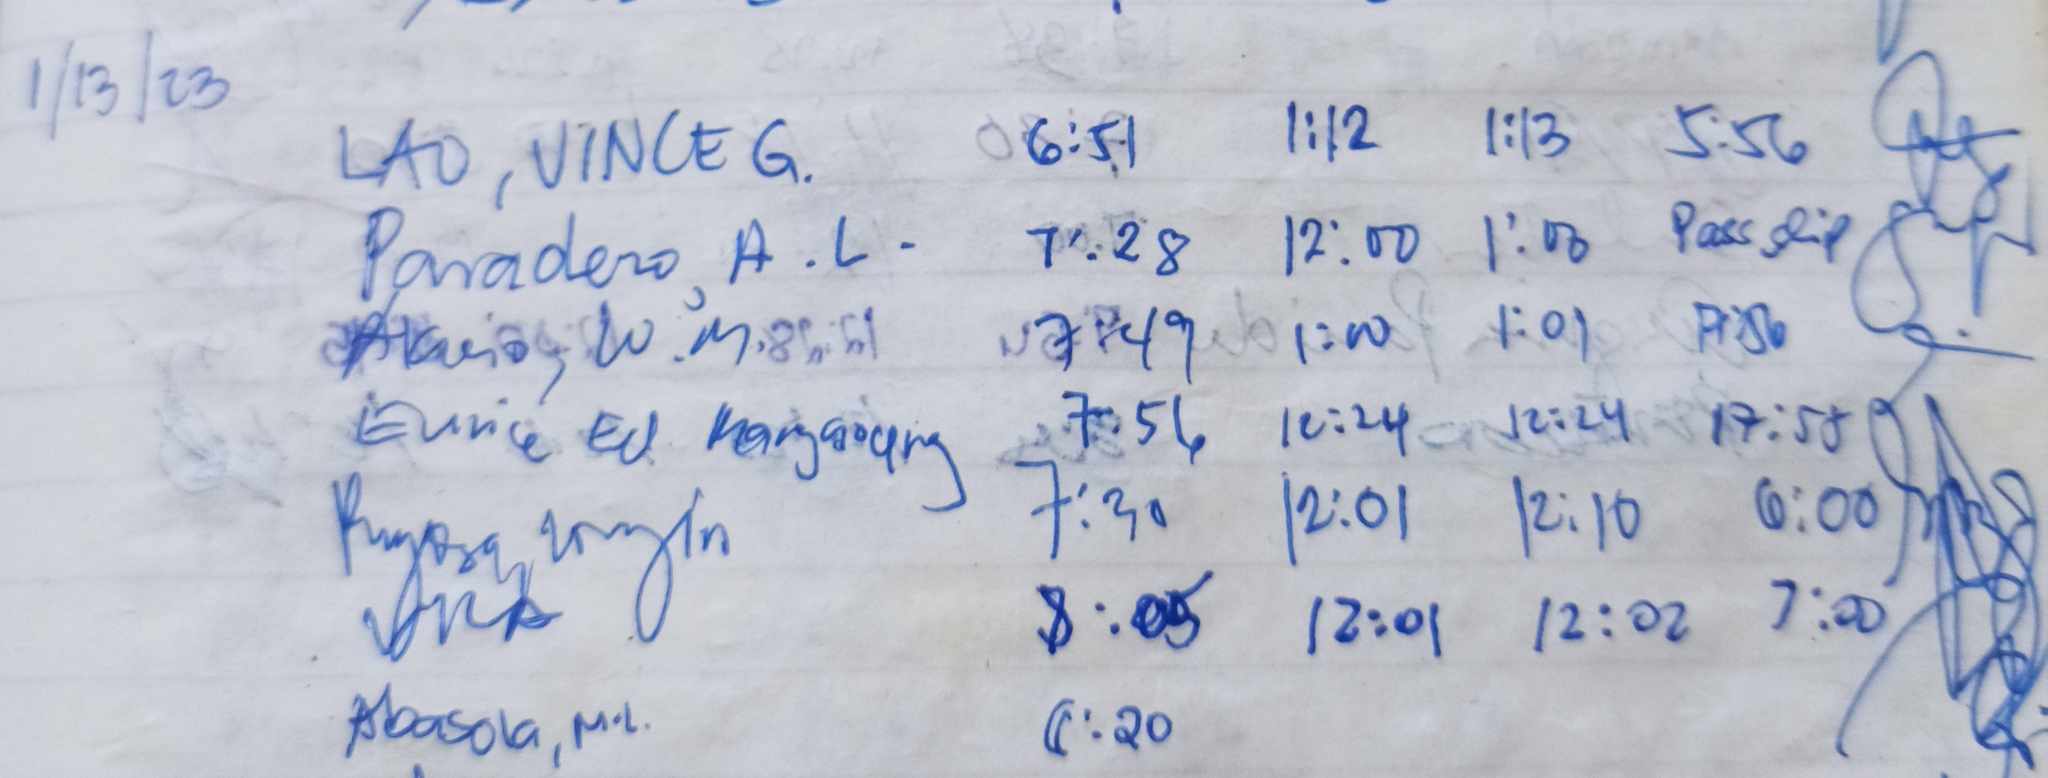 1/13/23
LAO, VINCE G. 6:51 1:12 1:13 5:56
Paradero, A.L. 7:28 12:00 1:00 Pass slip
W.M. 7:49 1:00 1:01
Eunice Ed 7:56 12:24 12:24 17:58
7:30 12:01 12:10 6:00
8:05 12:01 12:02 7:00
Abasola, M.L. 6:20